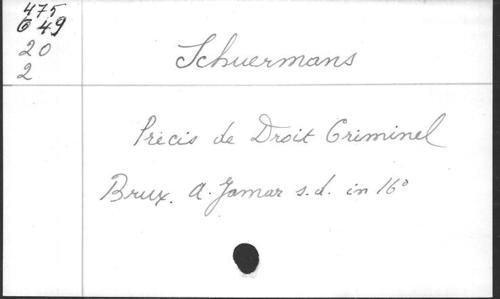 475
649
20
2
Schuermans
Précis de Droit Criminel
Brux. A. Jamar s.d. in 16°